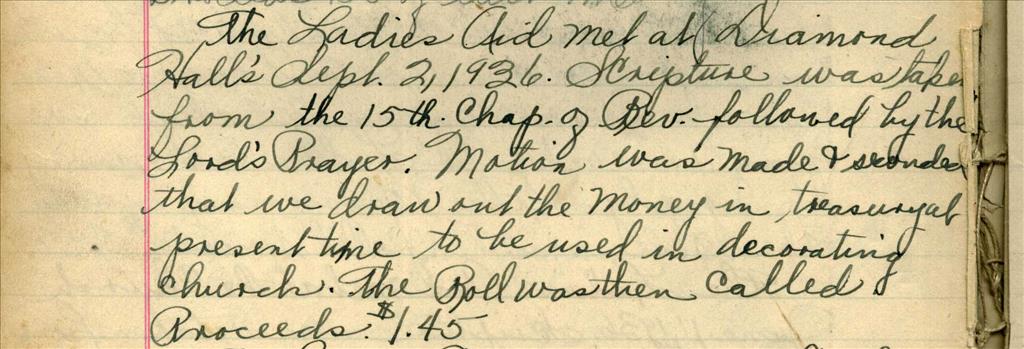 The Ladies Aid met at Diamond
Hall's Sept. 2, 1936. Scripture was take
from the 15th. Chap. of Rev. followed by the
Lord's Prayer. Motion was made & seconded
that we draw out the money in treasury at
present time to be used in decorating
church. The Roll was then called
Proceeds. $1.45